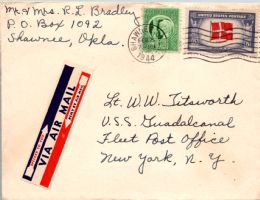 Mr. & Mrs. R. L. Bradley
P. O. Box 1092
Shawnee, Okla.
SHAWNEE
1944
UNITED STATES POSTAGE
VIA AIR MAIL
Lt. W. W. Titsworth
U.S.S. Guadalcanal
Fleet Post Office
New York, N. Y.